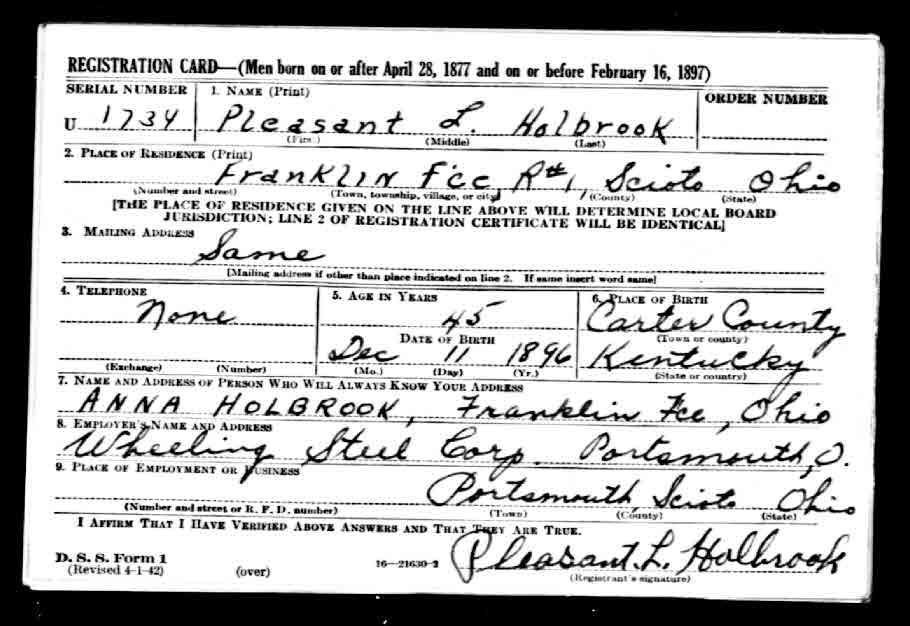 REGISTRATION CARD—(Men born on or after April 28, 1877 and on or before February 16, 1897)
SERIAL NUMBER 1. NAME (Print) ORDER NUMBER
U 1734 Pleasant L. Holbrook
(First) (Middle) (Last)
2. PLACE OF RESIDENCE (Print)
Franklin Fce R#1, Scioto Ohio
(Number and street) (Town, township, village, or city) (County) (State)
[THE PLACE OF RESIDENCE GIVEN ON THE LINE ABOVE WILL DETERMINE LOCAL BOARD
JURISDICTION; LINE 2 OF REGISTRATION CERTIFICATE WILL BE IDENTICAL]
3. MAILING ADDRESS
Same
[Mailing address if other than place indicated on line 2. If same insert word same]
4. TELEPHONE 5. AGE IN YEARS 6. PLACE OF BIRTH
None 45 Carter County
DATE OF BIRTH (Town or county)
Dec 11 1896 Kentucky
(Exchange) (Number) (Mo.) (Day) (Yr.) (State or country)
7. NAME AND ADDRESS OF PERSON WHO WILL ALWAYS KNOW YOUR ADDRESS
ANNA HOLBROOK, Franklin Fce, Ohio
8. EMPLOYER'S NAME AND ADDRESS
Wheeling Steel Corp. Portsmouth, O.
9. PLACE OF EMPLOYMENT OR BUSINESS
Portsmouth, Scioto Ohio
(Number and street or R. F. D. number) (Town) (County) (State)
I AFFIRM THAT I HAVE VERIFIED ABOVE ANSWERS AND THAT THEY ARE TRUE.
D. S. S. Form 1
(Revised 4-1-42) (over) 16—21630-2 Pleasant L. Holbrook
(Registrant's signature)